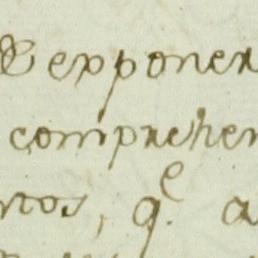 & exponer
comprehen
ntos, q.e a